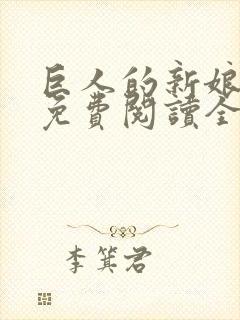 巨人的新娘
免費閱讀全
李箕君